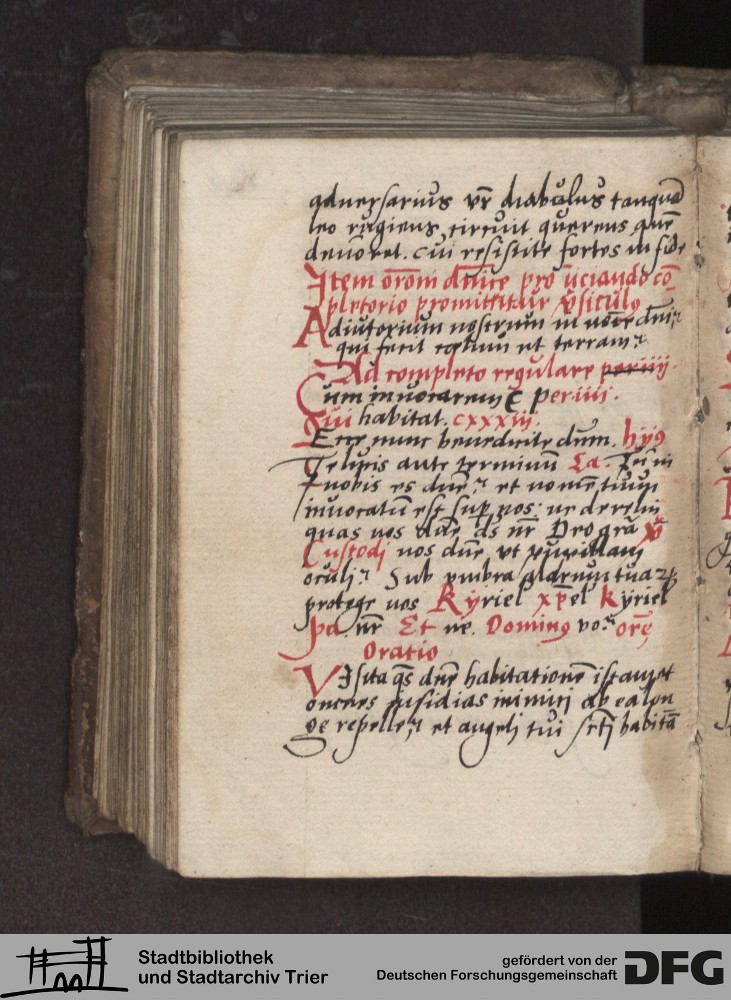 adversarius vr̄ diabolus tanquā
leo rugiens circuit querens quē
devoret. cui resistite fortes in fide
Item orōm dn̄ice pro
pletorio promittitur v̄siculꝯ
Adiutorium nostrum in noīe dn̄i
qui fecit celum et terram
Ad completo regulare
Cum invocarem ps iiii.
Qui habitat. cxxxiij.
Ecce nunc benedicite dūm. hȳꝯ
Te lucis ante terminū Ca. Tu in
nobis es dn̄e et nomē tuum
invocatū est sup̱ nos: ne derelin
quas nos dn̄e ds̄ nr̄ Deo grā
Custodi nos dn̄e, vt pupillam
oculi: Sub vmbra alarum tuaꝝ
protege nos Kyriel xp̄el kyriel
Pa. nr̄ Et ne. Dominꝯ vo. orē
Oratio
Visita q̄s dn̄e habitationē istam et
omnes insidias inimici ab ea lon
ge repelle: et angeli tui sctī habitā
Stadtbibliothek
und Stadtarchiv Trier
gefördert von der
Deutschen Forschungsgemeinschaft
DFG